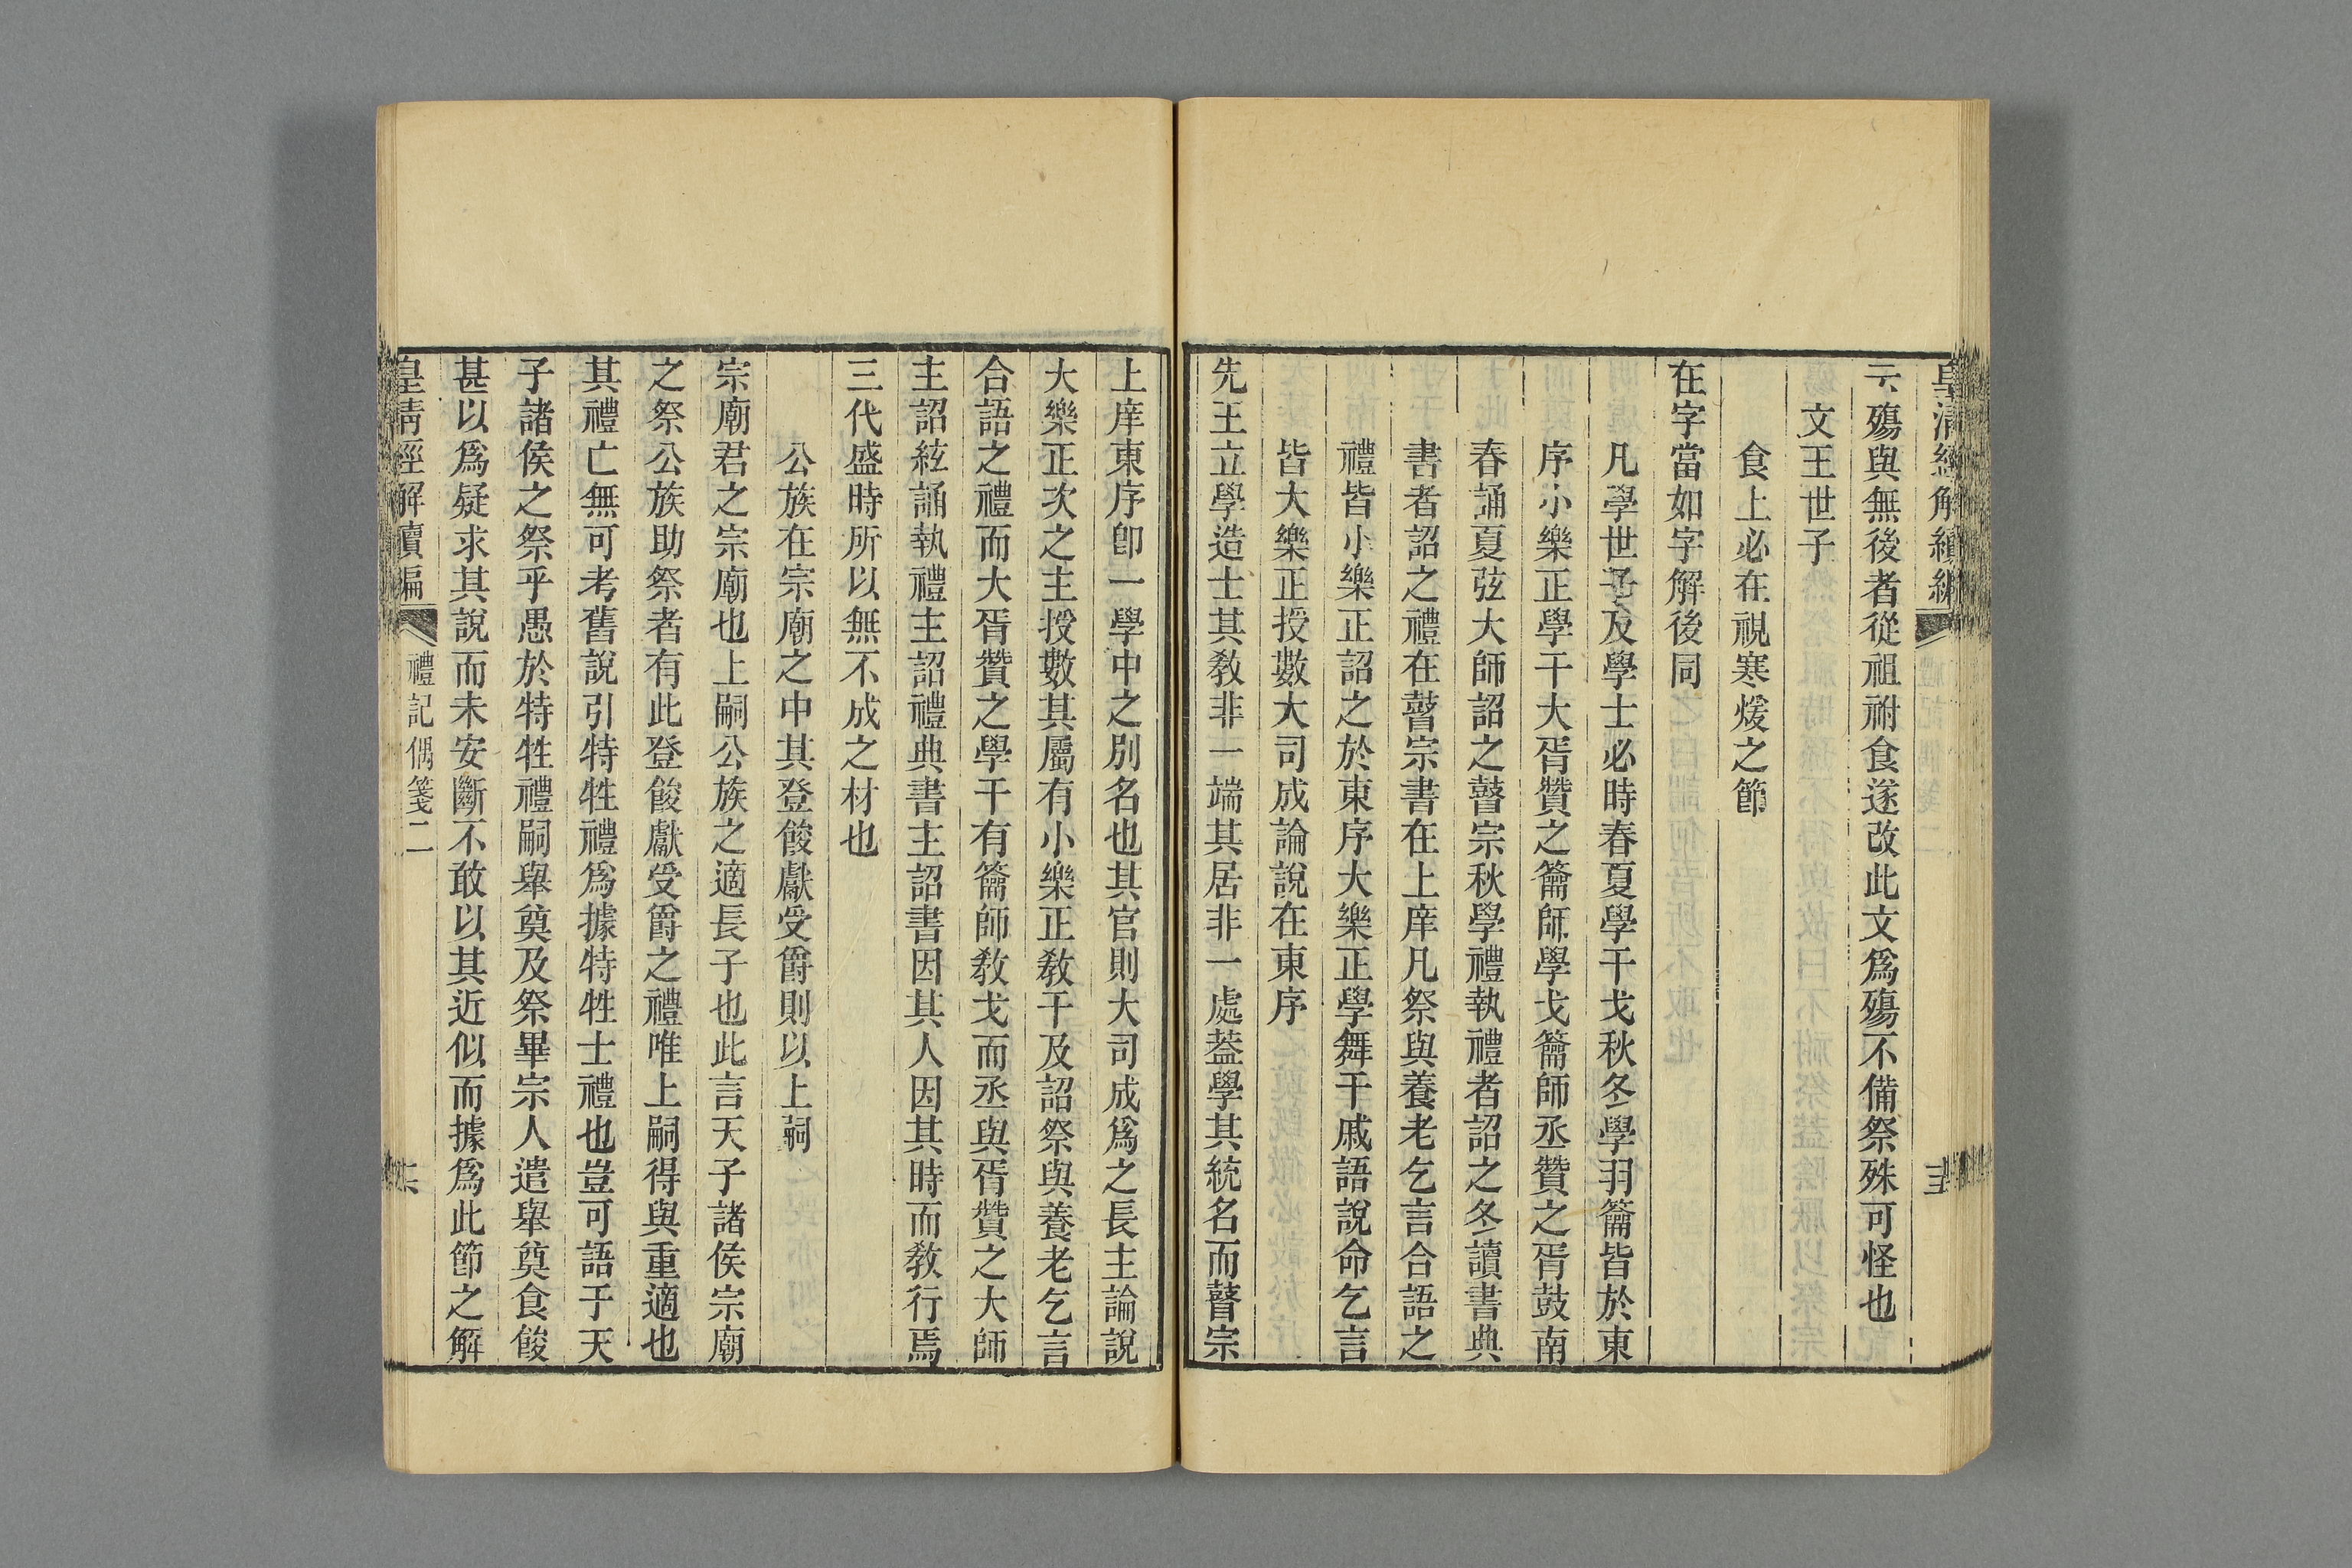 皇清經解續編
云殤與無後者從祖祔食遂改此文爲殤不備祭殊可怪也
文王世子
食上必在視寒煖之節
在字當如字解後同
凡學世子及學士必時春夏學干戈秋冬學羽籥皆於東
序小樂正學干大胥贊之籥師學戈籥師丞贊之胥鼓南
春誦夏弦大師詔之瞽宗秋學禮執禮者詔之冬讀書典
書者詔之禮在瞽宗書在上庠凡祭與養老乞言合語之
禮皆小樂正詔之於東序大樂正學舞干戚語說命乞言
皆大樂正授數大司成論說在東序
先王立學造士其敎非一端其居非一處葢學其統名而瞽宗
上庠東序卽一學中之別名也其官則大司成爲之長主論說
大樂正次之主授數其屬有小樂正敎干及詔祭與養老乞言
合語之禮而大胥贊之學干有籥師敎戈而丞與胥贊之大師
主詔絃誦執禮主詔禮典書主詔書因其人因其時而敎行焉
三代盛時所以無不成之材也
公族在宗廟之中其登餕獻受爵則以上嗣
宗廟君之宗廟也上嗣公族之適長子也此言天子諸侯宗廟
之祭公族助祭者有此登餕獻受爵之禮唯上嗣得與重適也
其禮亡無可考舊說引特牲禮爲據特牲士禮也豈可語于天
子諸侯之祭乎愚於特牲禮嗣舉奠及祭畢宗人遣舉奠食餕
甚以爲疑求其說而未安斷不敢以其近似而據爲此節之解
皇清經解續編
禮記偶箋二